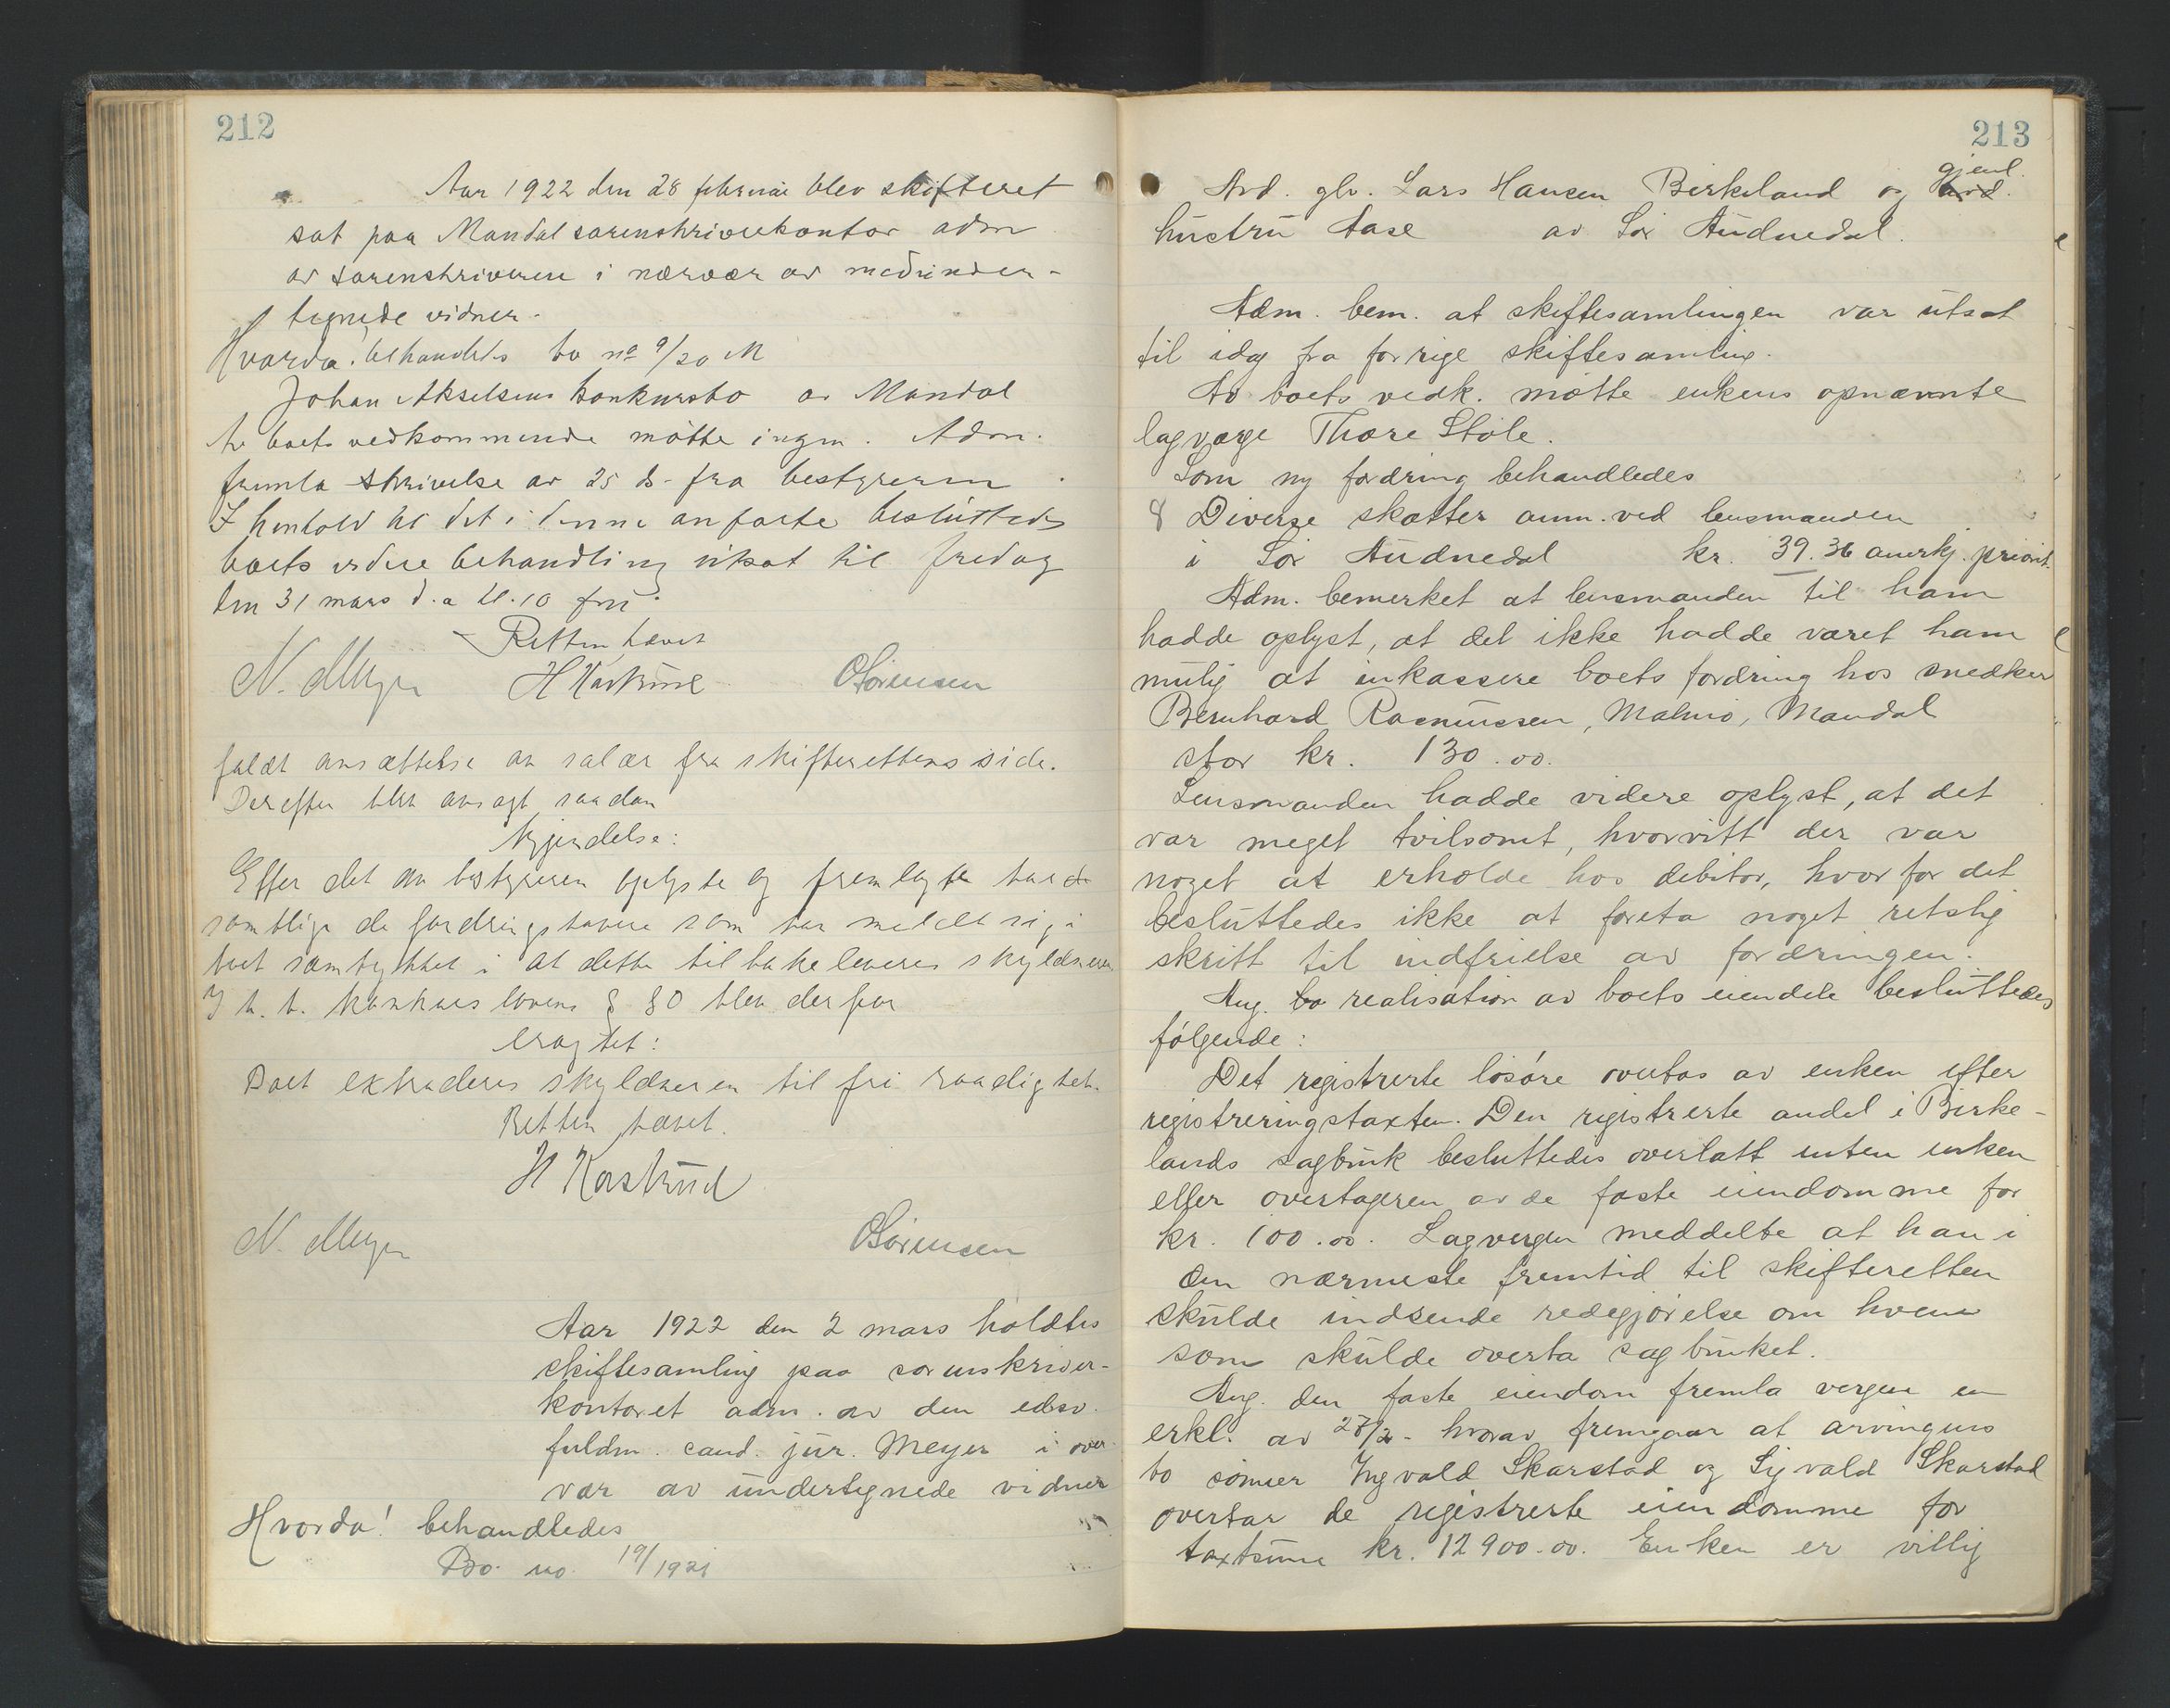 212
Aar 1922 den 28 februar blev skifteret
sat paa Mandal sorenskriverkontor adm
av sorenskriveren i nærvær av medunder-
tegnede vidner.
Hvorda! behandledes bo no 9/20 M
Johan Akselsens konkursbo av Mandal
Av boets vedkommende møtte ingen. Adm.
fremla skrivelse av 25 ds. fra bestyreren.
I henhold til det i denne anførte besluttedes
boets videre behandling utsat til fredag
den 31 mars d.a kl. 10 fm.
Retten hævet
N. Meyer H Kastrud OSørensen
faldt ansættelse av salær fra skifterettens side.
Derefter blev avsagt saadan
Kjendelse:
Efter det av bestyreren oplyste og fremlagte har
samtlige de fordringshavere som har meldt sig i
boet samtykket i at dette tilbakeleveres skyldneren
I h. t. konkurslovens § 80 blev derfor
eragtet:
Boet extraderes skyldneren til fri raadighet.
Retten hævet.
H Kastrud
N. Meyer OSørensen
Aar 1922 den 2 mars holdtes
skiftesamling paa sorenskriver-
kontoret adm. av den edsv.
fuldm. cand. jur. Meyer i over-
vær av undertegnede vidner
Hvorda! behandledes
Bo. no. 19/1921
213
Avd. gbr. Lars Hansen Birkeland og gjenl. avd.
hustru Aase av Sør Audnedal.
Adm. bem. at skiftesamlingen var utsat
til idag fra forrige skiftesamling.
Av boets vedk. møtte enkens opnævnte
lagværge Thore Støle.
Som ny fordring behandledes
8 Diverse skatter anm. ved lensmanden
i Sør Audnedal kr. 39.36 anerkj. priorit.
Adm. bemerket at lensmanden til ham
hadde oplyst, at det ikke hadde været ham
mulig at inkassere boets fordring hos snedker
Bernhard Rasmussen, Malmø, Mandal
stor kr. 130.00.
Lensmanden hadde videre oplyst, at det
var meget tvilsomt, hvorvitt der var
noget at erholde hos debitor, hvorfor det
besluttedes ikke at foreta noget retslig
skritt til indfrielse av fordringen.
Ang. bo realisation av boets eiendele besluttedes
følgende:
Det registrerte løsøre overtas av enken efter
registreringstaxten. Den registrerte andel i Birke-
lands sagbruk besluttedes overlatt enten enken
eller overtageren av de faste eiendomme for
kr. 100.00. Lagvergen meddelte at han i
den nærmeste fremtid til skifteretten
skulde indsende redegjørelse om hvem
som skulde overta sagbruket.
Ang. den faste eiendom fremla vergen en
erkl. av 27/2 - hvorav fremgaar at arvingens
to sønner Ingvald Skarstad og Sigvald Skarstad
overtar de registrerte eiendomme for
taxtsum kr. 12900.00. Enken er villig